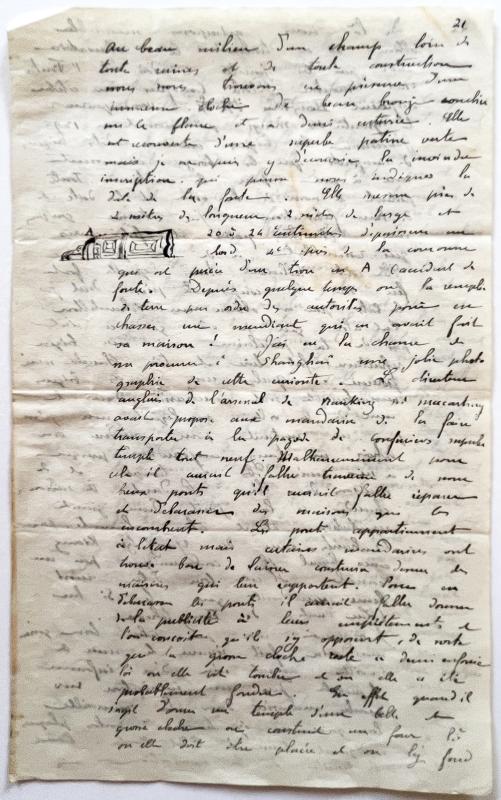 21
Au beau milieu d'un champ loin de
toute ruines et de toute construction
nous nous trouvons en présence d'une
cloche de beau bronze couchée
sur le flanc et à demi enterrée. Elle
est recouverte d'une superbe patine verte
mais je ne puis y découvrir la moindre
inscription qui puisse nous indiquer la
date de la fonte. Elle mesure près de
mètres de longueur, 2 mètres de large et
A 20 à 24 centimètres d'épaisseur au
bord de la couronne
qui est percée d'un trou en A accident de
fonte. Depuis quelque temps on l'a remplie
de terre par ordre des autorités pour en
chasser un mendiant qui en avait fait
sa maison! J'ai eu la chance de
me procurer à Shanghaï une jolie photo
graphie de cette curiosité. Le directeur
anglais de l'arsenal de Nanking
avait proposé aux mandarins de la faire
transporter à la pagode de Confucius superbe
temple tout neuf. Malheureusement pour
cela il aurait fallu traverser de
vieux ponts qu'il aurait fallu réparer
et débarrasser des maisons qui les
encombrent. Les ponts appartiennent
à l'état mais certains mandarins ont
trouvé bon de laisser construire dessus des
maisons qui leur rapportent. Pour en
débarrasser les ponts il aurait fallu donner
de la publicité à leurs empiètements et
l'on conçoit qu'ils s'y opposent, de sorte
que la grosse cloche reste à demi enfouie
là où elle est tombée et où elle a été
probablement fondue. En effet quand il
s'agit d'orner un temple d'une belle et
grosse cloche on construit un four là
où elle doit être placée et on l'y fond